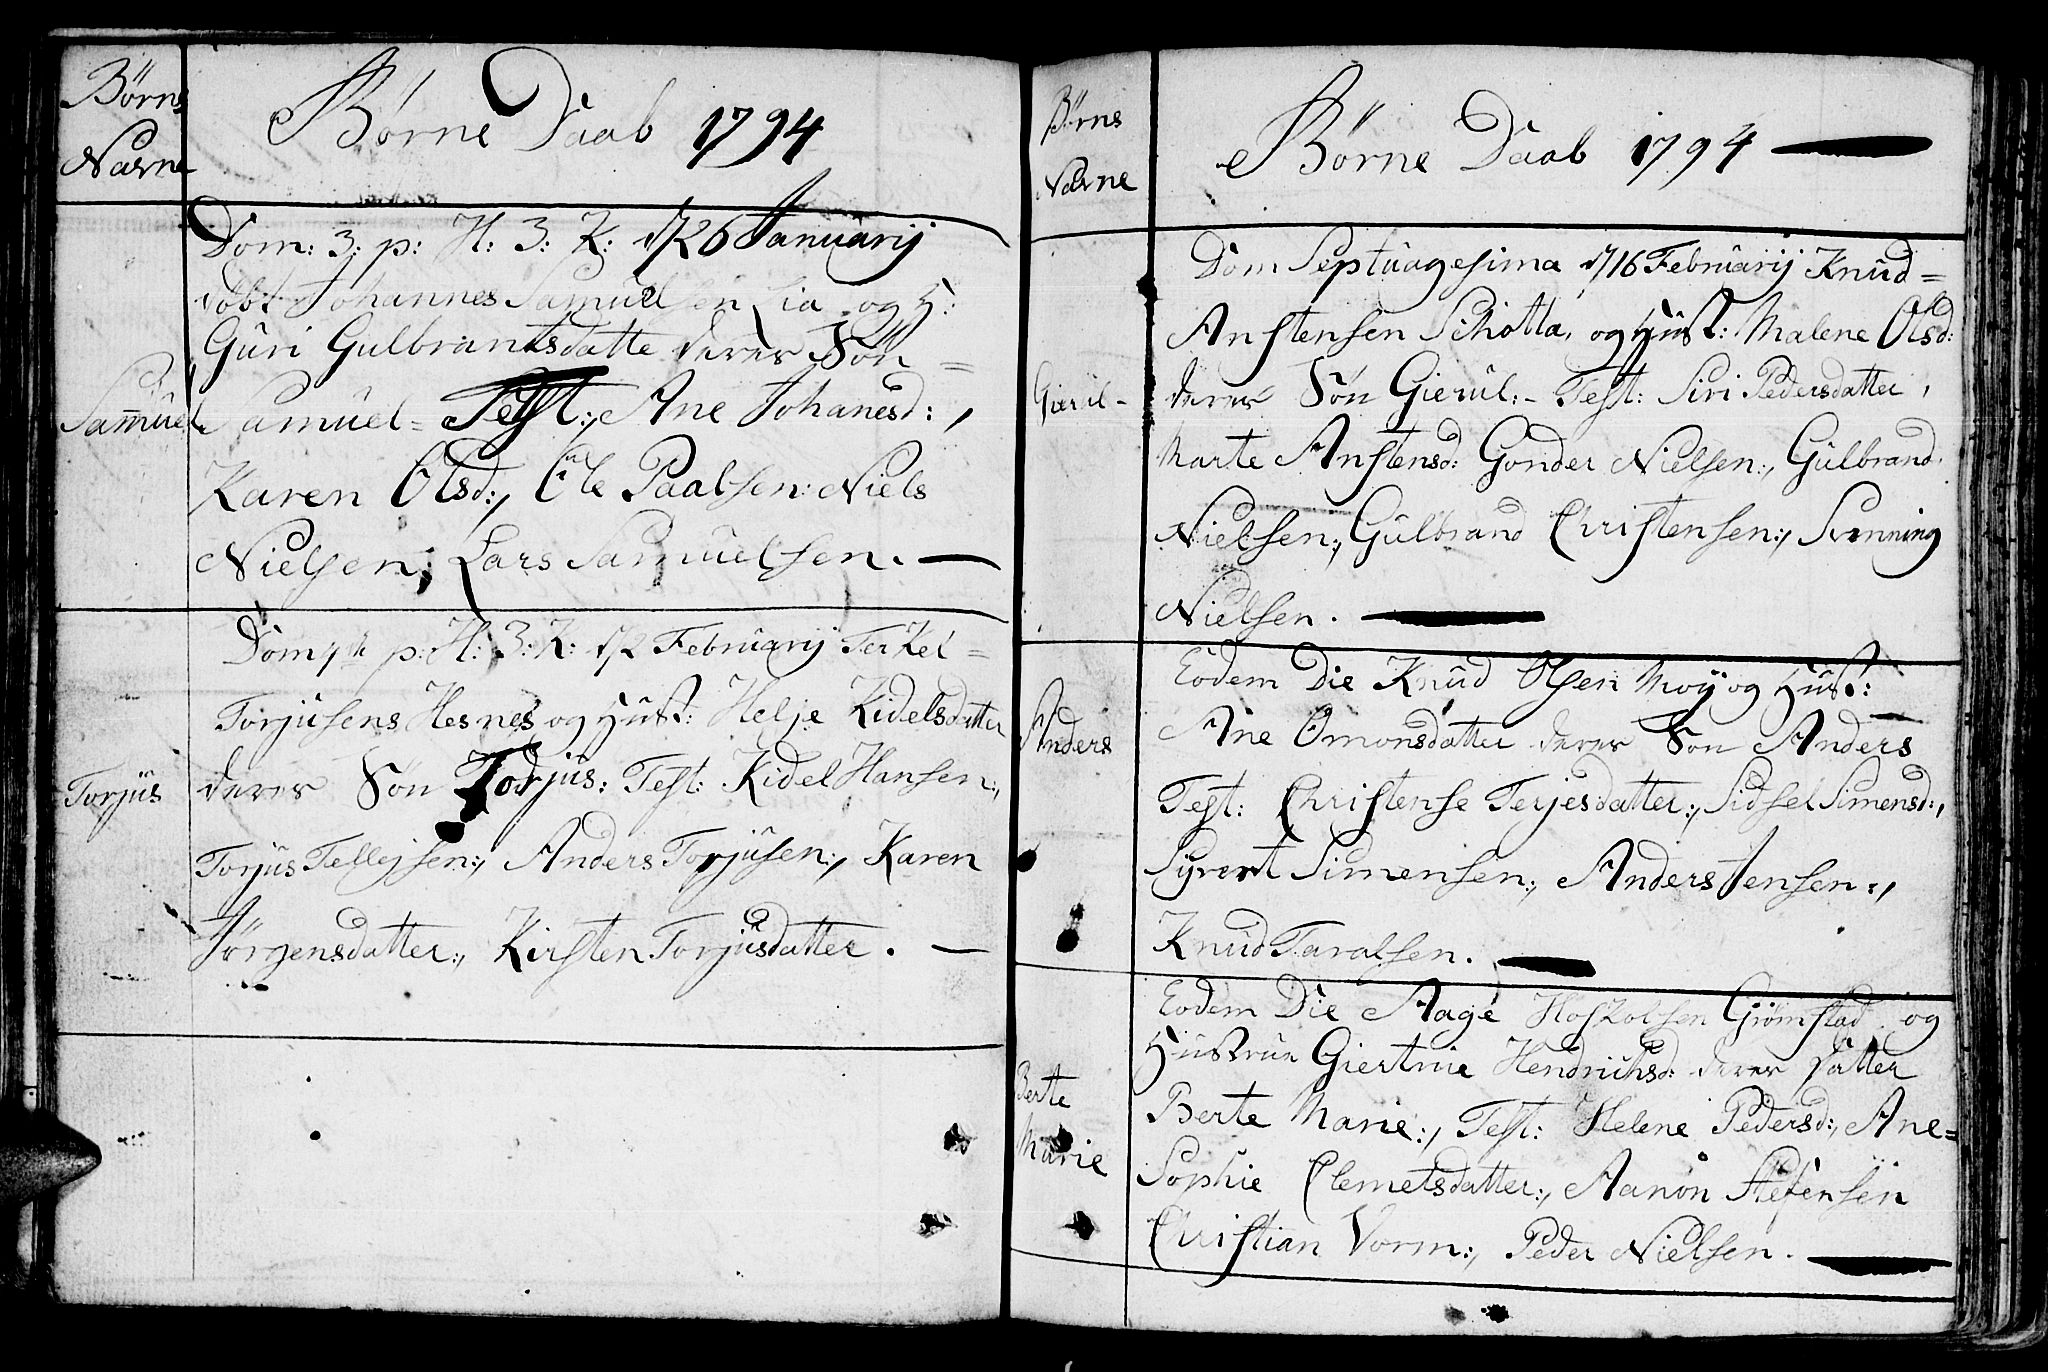 Børns
Navne
Børne Daab 1794
Dom: 3: p: H: 3: K: d/26 Januarij
døbt Johannes Samuelsen Lia og H:
Guri Gulbrantsdatte deres Søn =
Samuel
Samuel = Test:, Ane Johanesd:,
Karen Olsd:, Ole Paalsen: Niels
Nielsen; Lars Samuelsen. —
Dom 4de p: H: 3: K: d/2 Februarij Terkel =
Torjusens Hesnes og Hust: Helje Kidelsdatter
Torjus
deres Søn Torjus: Test: Kidel Hansen:,
Torjus Tellefsen:, Anders Torjusen:, Karen
Jörgensdatter:, Kirsten Torjusdatter. —
Børns
Navne
Børne Daab 1794 —
Dom Septuagesima d/16 Februarij Knud =
Anstensen Schotta, og Hust: Malene Olsd:
Gierul -
deres Søn Gierul: - Test: Siri Pedersdatter,
Marte Anstensd: Gonder Nielsen:, Gulbrand
Nielsen:, Gulbrand Christensen:, Svenning
Nielsen. —
Eodem Die Knud Olsen Moy og Hust:
Anders
Ane Omonsdatter deres Søn Anders
Test: Christense Terjesdatter:, Sidsel Simensd:,
Syvert Simensen:, Anders Jensen:,
Knud Taralsen. —
Eodem Die Aage Hoskolsen Grömstad og
Hustrue Giertrue Hendrichsd: deres Datter
Berte
Marie
Berte Marie:, Test: Helene Pedersd:, Ane =
Sophie Clemetsdatter:, Aanon Stefensen
Christian Vorm:, Peder Nielsen. —